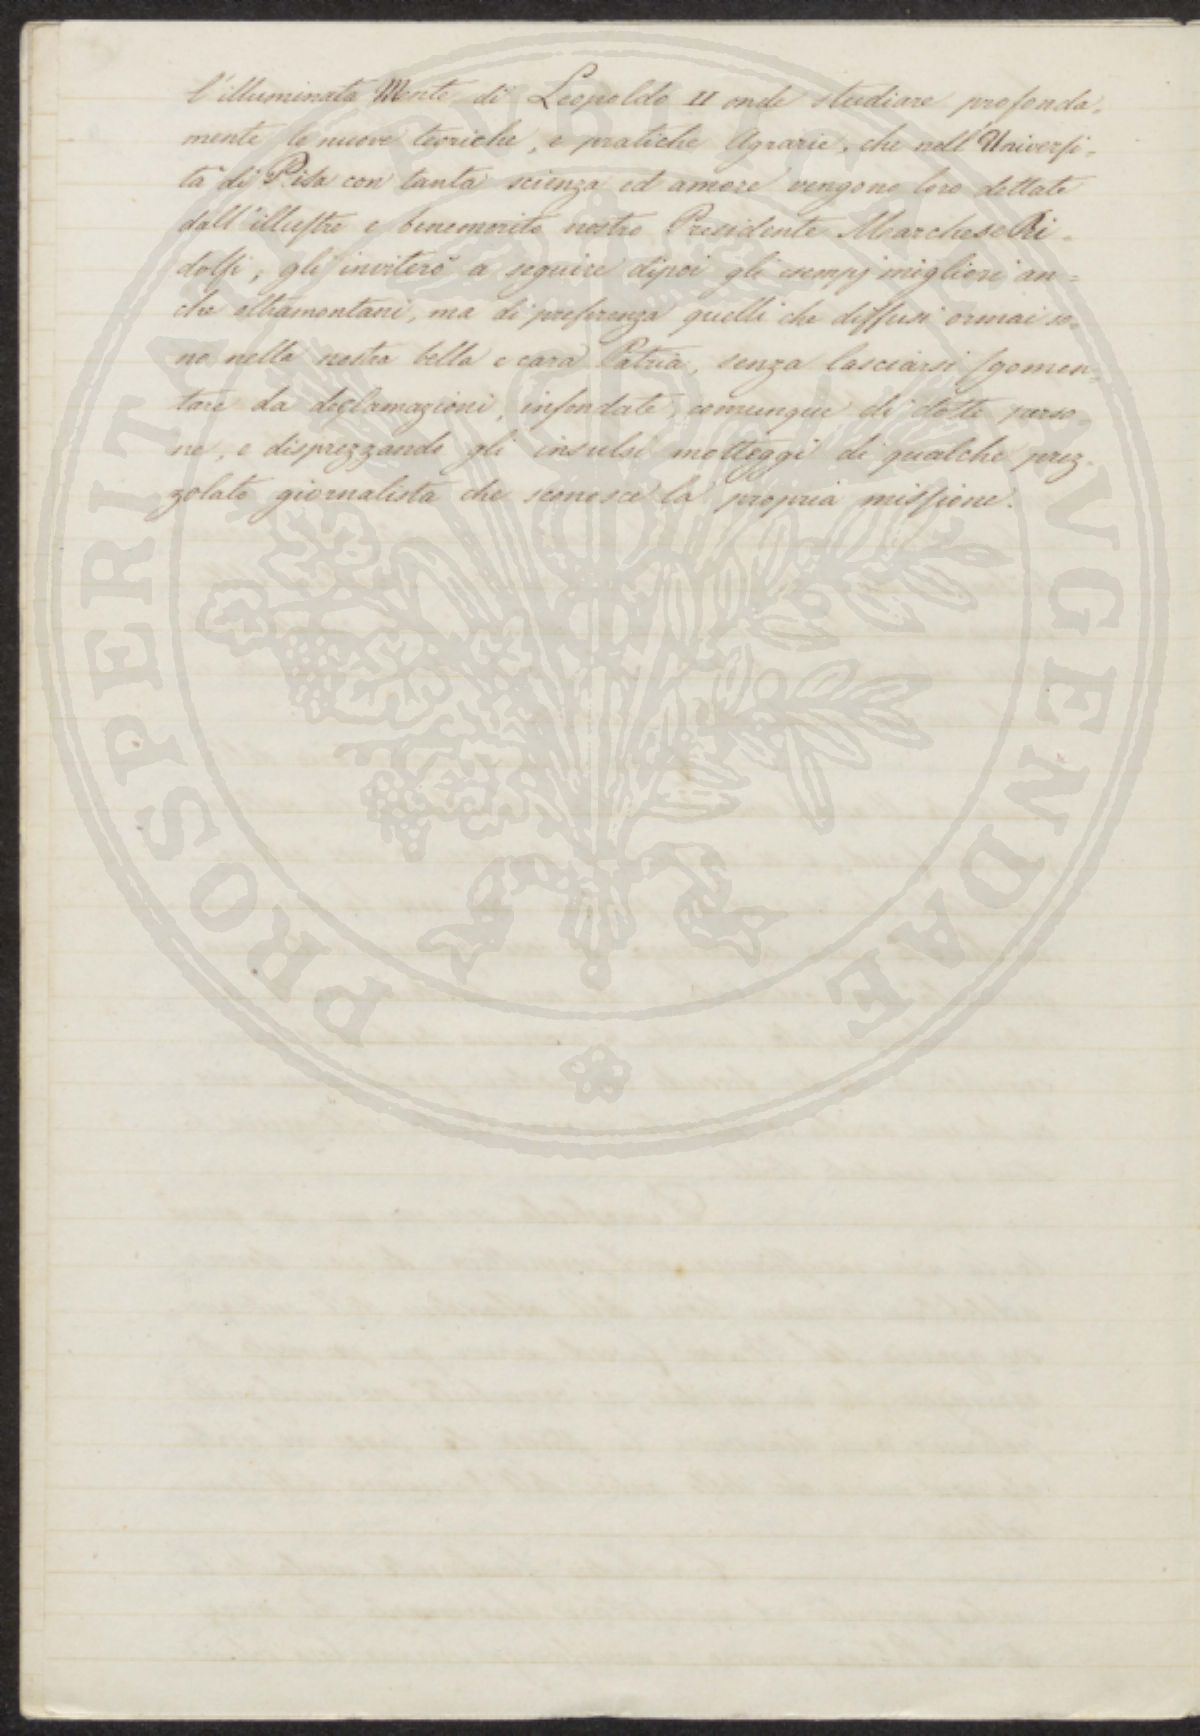 l'illuminata Mente di Leopoldo II onde studiare profonda-
mente le nuove teoriche, e pratiche Agrarie, che nell'Universi-
tà di Pisa con tanta scienza ed amore vengono loro dettate
dall'illustre e benemerito nostro Presidente Marchese Ri-
dolfi, gli inviterò a seguire dipoi gli esempj migliori an-
che oltramontani, ma di preferenza quelli che diffusi ormai so-
no nella nostra bella e cara Patria, senza lasciarsi sgomen-
tare da declamazioni, infondate, comunque di dotte perso-
ne, e disprezzando gli insulsi motteggi di qualche prez-
zolato giornalista che sconosce la propria missione.
PROSPERITATI PUBLICAE AUGENDAE